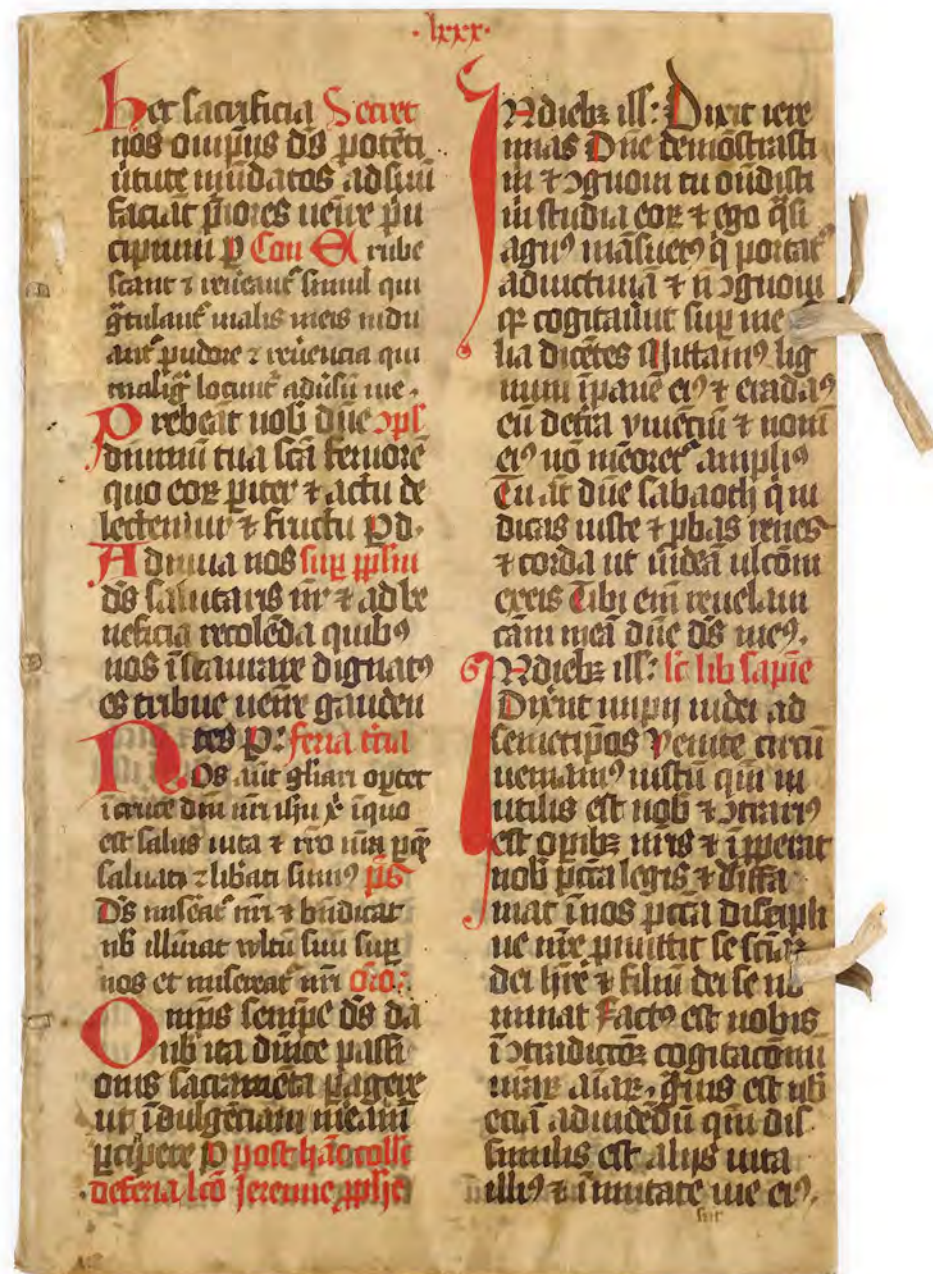 · lxxx ·
hec sacrificia Secret
nos omīpns ds̄ potēti
uītute mūdatos ad suū
faciat pͥores ueīre pn
cipium ꝑ Com Erube
scant ⁊ reuēant᷑ simul qui
gͣtulant᷑ malis meis indu
ant᷑ pudore ⁊ reuēencia qui
malig̅ locunt᷑ aduᷤsū me.
Prebeat nob̄ dn̄e ↄpl̄
diuinū tua sc̄a feruorē
quo eoꝝ pͥter ⁊ actu de
lectemur ⁊ fructu Pd.
Adiuua nos sup ppl̄m
ds̄ salutaris nr̄ ⁊ ad be
neficia recolēda quibꝰ
nos īstaurare dignatꝰ
es tribue ueīre gauden
tes P: feria tͨia
Nos aūt gl̄iari oportet
ī cruce dn̄i nr̄i ihū xͥ ī quo
est salus uita ⁊ rr̄o nr̄a ꝑ quē
saluati ⁊ lib̄ati sumꝰ ps̄
Ds̄ miseat᷑ nr̄i ⁊ bn̄dicat
nb̄ illūiat wltū suū sup
nos et misereat᷑ nr̄i oro:
Omp̄s sempīe ds̄ da
nb̄ ita dn̄ice passi
onis sacramēta ꝑagere
ut īdulgēciam meam̄
ꝑcipere P post hāc colle
de feria lc̄o Jeremie ꝓph̄e
INdiebꝫ ill: Dixit iere
mias Dn̄e demōstrasti
m̄ ⁊ ↄgnoui tu on̄disti
m̄ studia eoꝝ ⁊ ego q̄si
agnꝰ māsuetꝰ q̄ portat᷑
ad uictimā ⁊ n̄ ↄgnoui
qꝛ cogitauer̄ut sup me ↄsi
lia dicētes Mittamꝰ lig
num ī panē eiꝰ ⁊ eradamꝰ
eū de tr̄a viuētiū ⁊ nom̄
eiꝰ nō meoret᷑ ampliꝰ
Tu aūt dn̄e sabaoth q̄ iu
dicas iuste ⁊ ꝓbas renes
⁊ corda ut uideā ulcōm̄
ex eis Tibi em̄ reuelaui
cām meā dn̄e ds̄ meꝰ.
INdiebꝫ ill: lc̄ lib sapīe
Dixer̄ut impij iudei ad
semetip̄os Venite circū
ueniamꝰ iustū qm̄ in
utilis est nob̄ ⁊ ↄtrariꝰ
est oꝑibꝫ nr̄is ⁊ īꝓperat
nob̄ pcc̄a legis ⁊ diffa
mat ī nos pcc̄a discipli
ne nr̄e ꝓmittit se sciā
dei hr̄e ⁊ filiū dei se no
minat Factꝰ est nobis
ī ↄtradictōꝫ cogitacōnū
nr̄aꝝ alaꝝ, gͣuis est nb̄
eciā ad uidēdū qm̄ dis
similis est alijs uita
illiꝰ ⁊ īmutate uie eiꝰ.